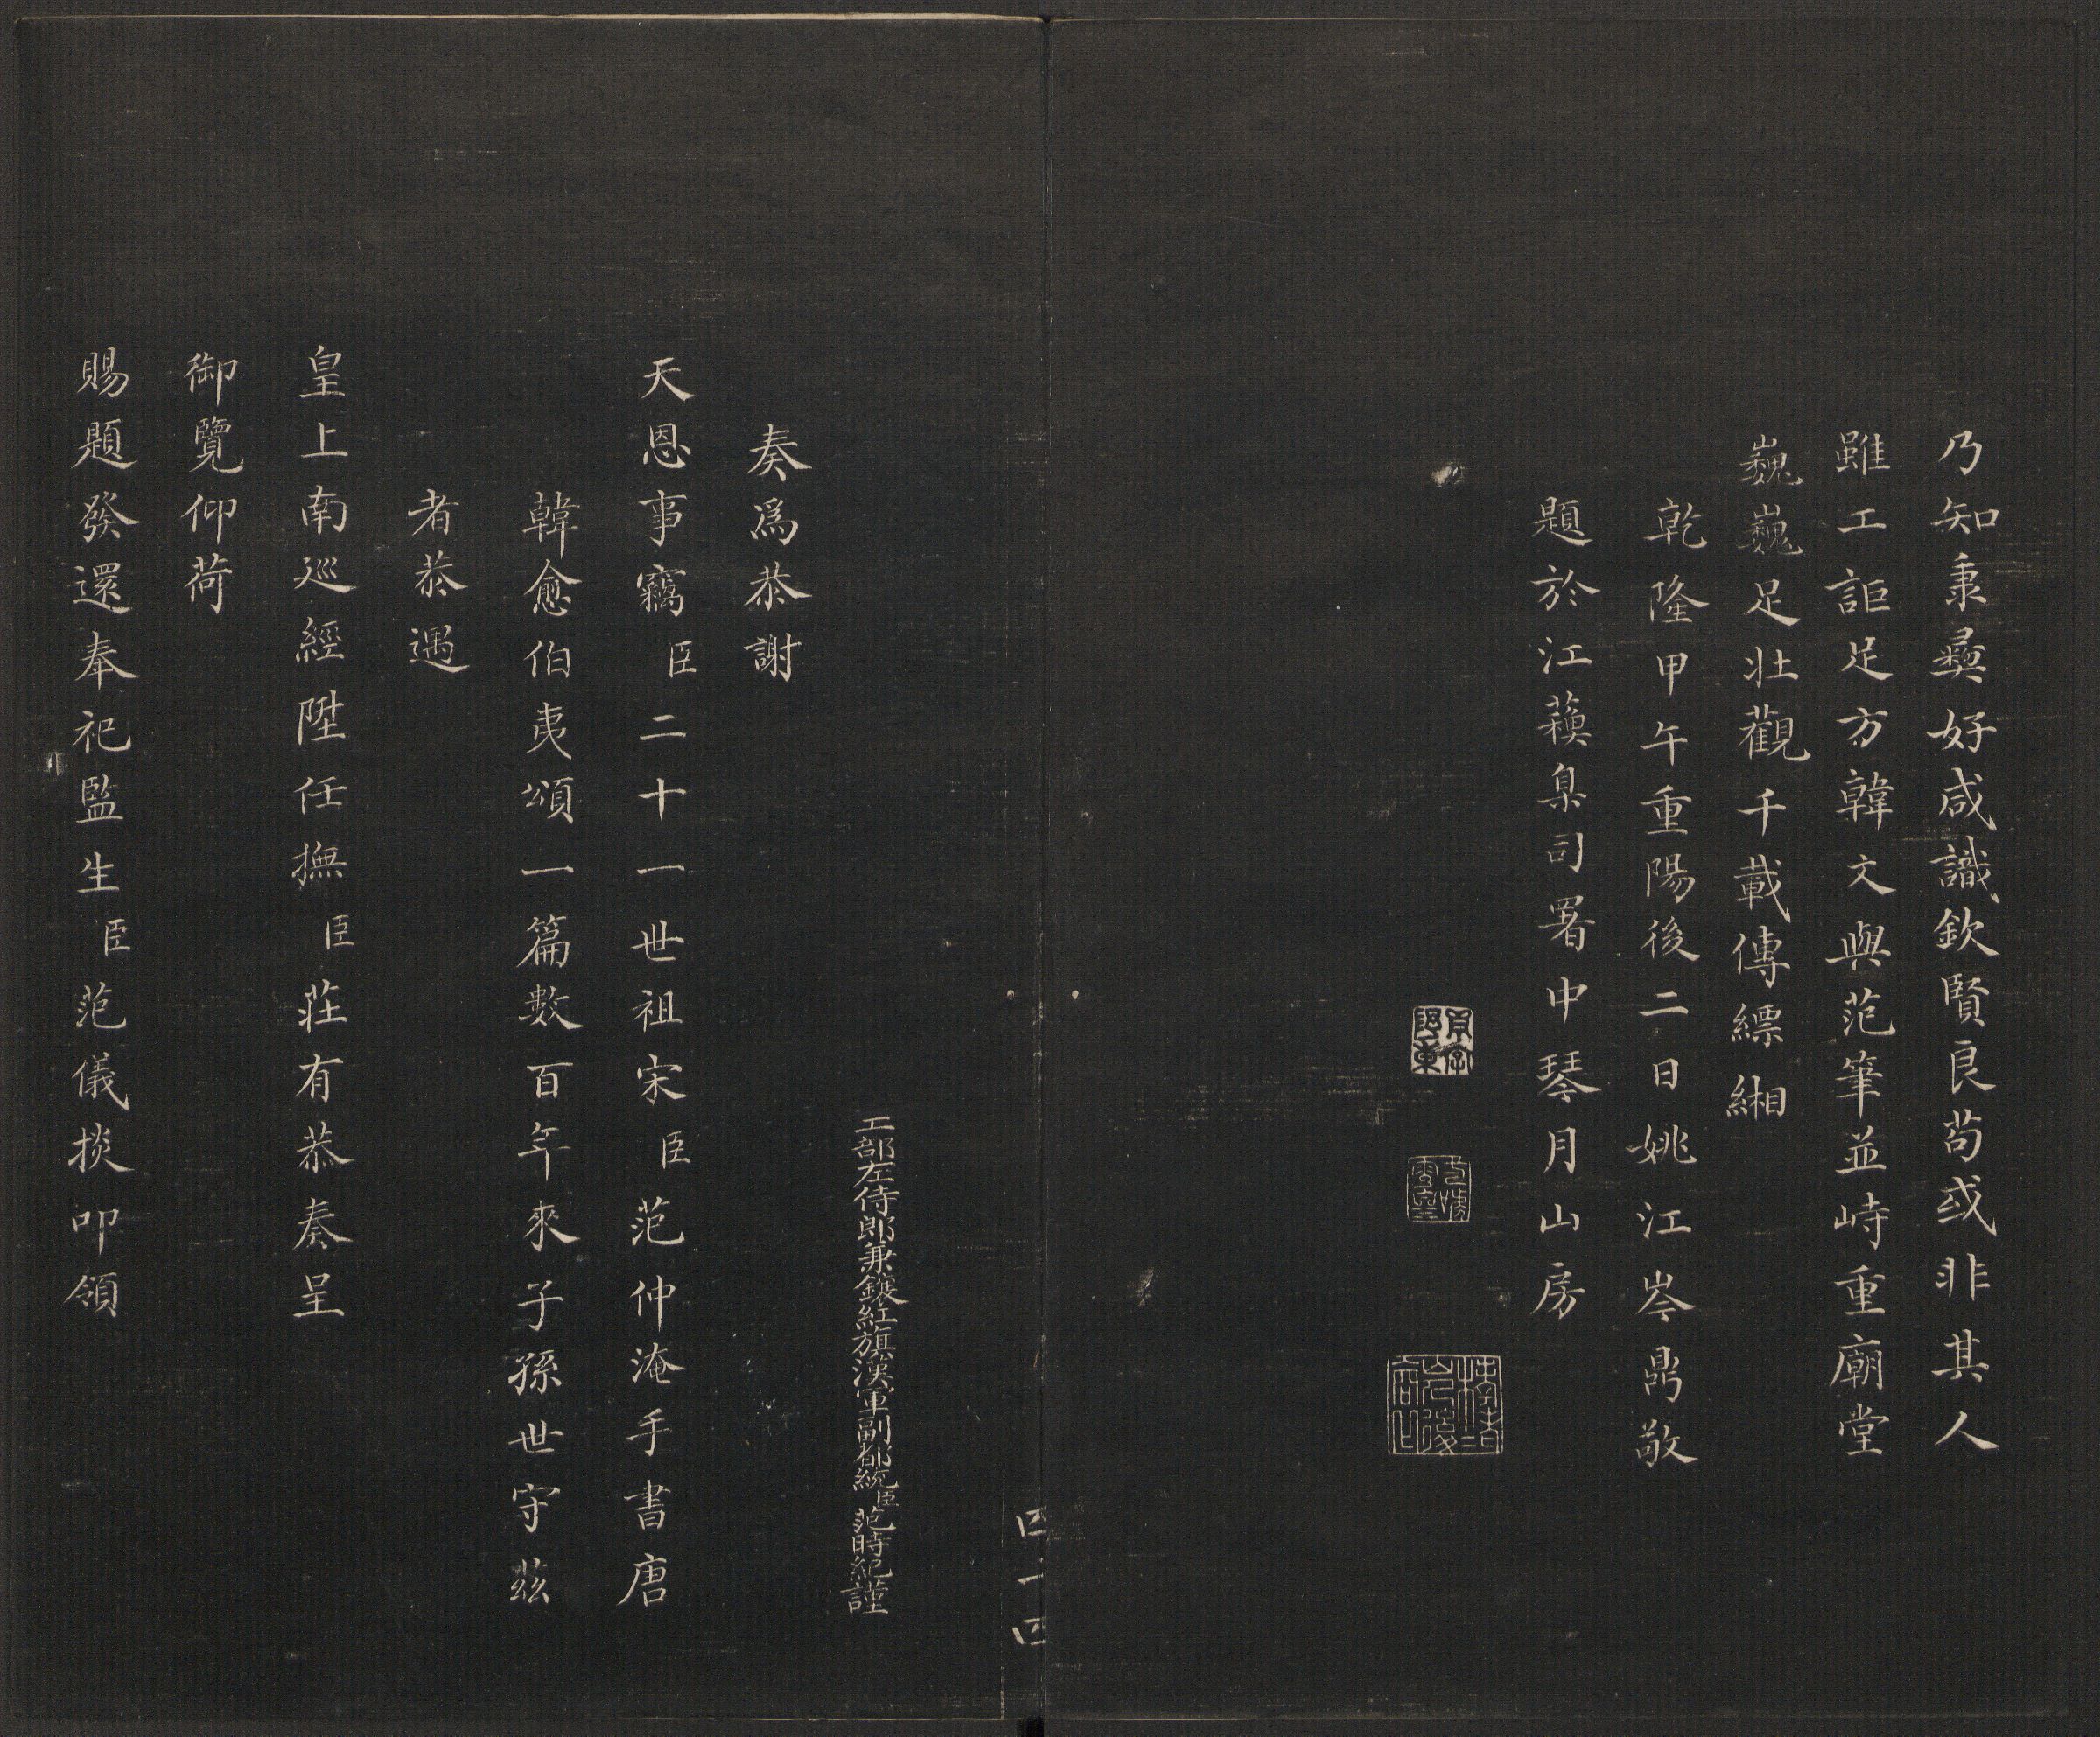 乃知秉彝好咸識欽賢良苟或非其人
雖工詎足方韓文與范筆並峙重廟堂
巍巍足壯觀千載傳縹緗
乾隆甲午重陽後二日姚江岑鹍敬
題於江蘓臬司署中琴月山房
四十四
工部左侍郎兼鑲紅旗漢軍副都統臣范時紀謹
奏爲恭謝
天恩事竊臣二十一世祖宋臣范仲淹手書唐
韓愈伯夷頌一篇數百年來子孫世守茲
者恭遇
皇上南巡經陞任撫臣莊有恭奏呈
御覽仰荷
賜題發還奉祀監生臣范儀掞叩領